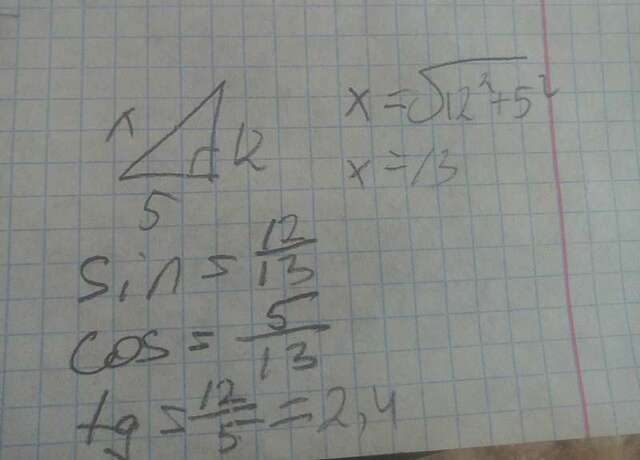 x 12 5
x = √12²+5²
x = 13
sin = 12/13
cos = 5/13
tg = 12/5 = 2,4